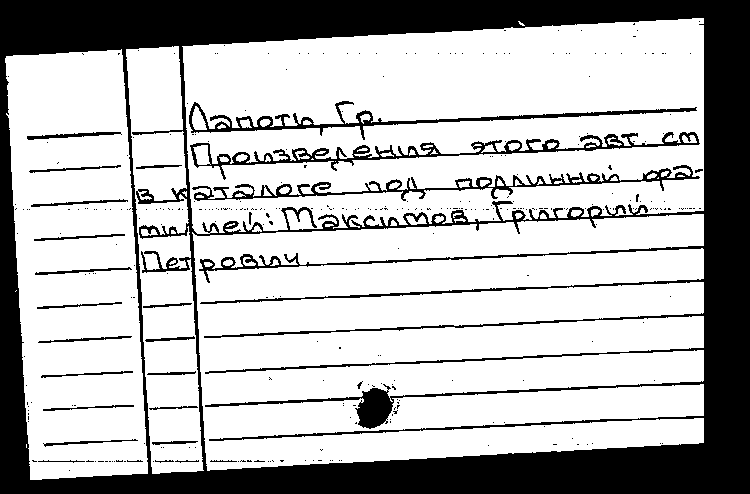 Лапоть, Гр.
Произведения этого авт. см
в каталоге под подлинной фа-
милией: Максимов, Григорий
Петрович.